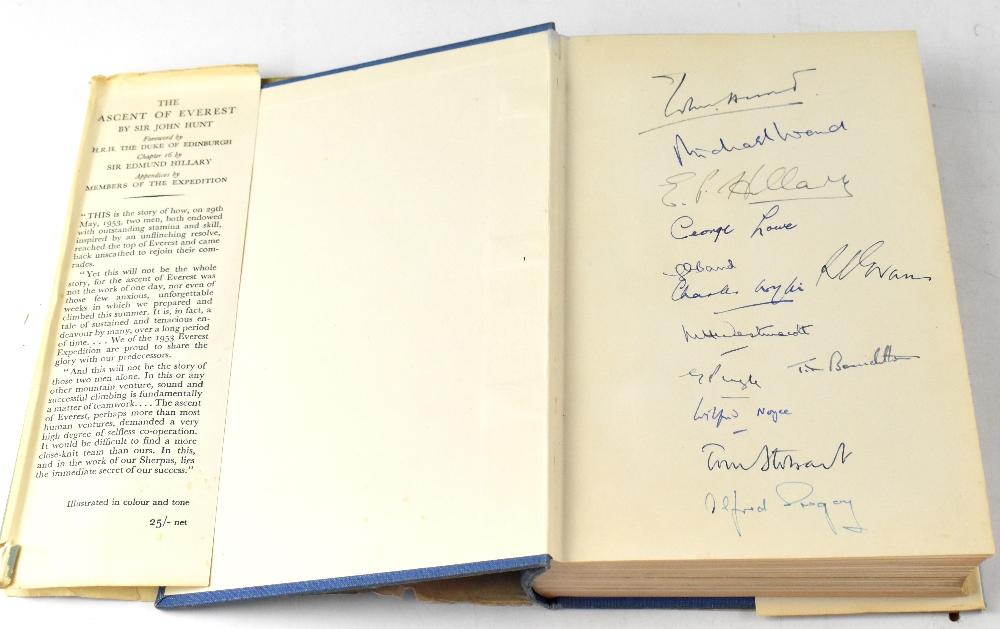 THE
ASCENT OF EVEREST
BY SIR JOHN HUNT
Foreword by
H.R.H. THE DUKE OF EDINBURGH
Chapter 16 by
SIR EDMUND HILLARY
Appendices by
MEMBERS OF THE EXPEDITION
"THIS is the story of how, on 29th
May, 1953, two men, both endowed
with outstanding stamina and skill,
inspired by an unflinching resolve,
reached the top of Everest and came
back unscathed to rejoin their com-
rades.
"Yet this will not be the whole
story, for the ascent of Everest was
not the work of one day, nor even of
those few anxious, unforgettable
weeks in which we prepared and
climbed this summer. It is, in fact, a
tale of sustained and tenacious en-
deavour by many, over a long period
of time. . . . We of the 1953 Everest
Expedition are proud to share the
glory with our predecessors.
"And this will not be the story of
those two men alone. In this or any
other mountain venture, sound and
successful climbing is fundamentally
a matter of teamwork. . . . The ascent
of Everest, perhaps more than most
human ventures, demanded a very
high degree of selfless co-operation.
It would be difficult to find a more
close-knit team than ours. In this,
and in the work of our Sherpas, lies
the immediate secret of our success."
Illustrated in colour and tone
25/- net
John Hunt.
Michael Ward
E. P. Hillary
George Lowe
G Band
Charles Wylie R C Evans
M H Westmacott
G Pugh Tom Bourdillon
Wilfrid Noyce
Tom Stobart
Alfred Gregory